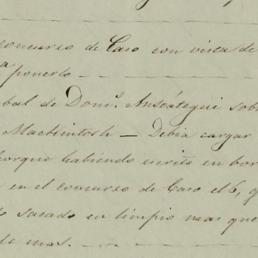 concurso de Caso con vista de
ponerlo
bal de Domo. Anseátegui sob
Mackintosh — Debia cargar
porque habiendo escrito en bor
en el concurso de Caso el 6, q
sacado en limpio mas que
de mas.